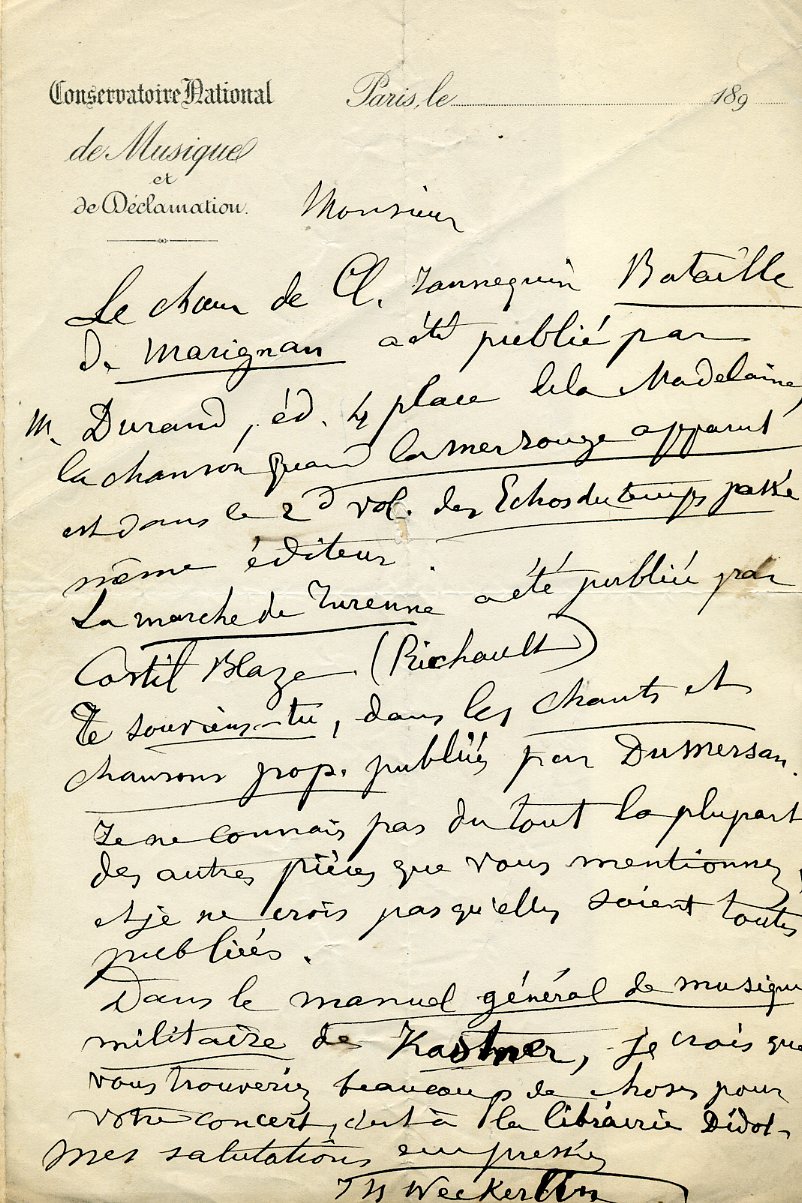 Conservatoire National
de Musique
et
de Déclamation.
Paris, le 189
Monsieur
Le chœur de Cl. Jannequin Bataille
de Marignan a été publié par
M. Durand, éd. 4 place de la Madelaine,
la chanson quand la mer rouge apparut
est dans le 2d vol. des Echos du temps passé
même éditeur.
La marche de Turenne a été publiée par
Castil Blaze (Richault)
Te souviens-tu, dans les chants et
chansons pop. publiés par Dumersan.
Je ne connais pas du tout la plupart
des autres pièces que vous mentionnez,
et je ne crois pas qu'elles soient toutes
publiées.
Dans le manuel général de musique
militaire de Kastner, je crois que
vous trouveriez beaucoup de choses pour
votre concert, c'est à la librairie Didot-
Mes salutations empressées
JB Weckerlin